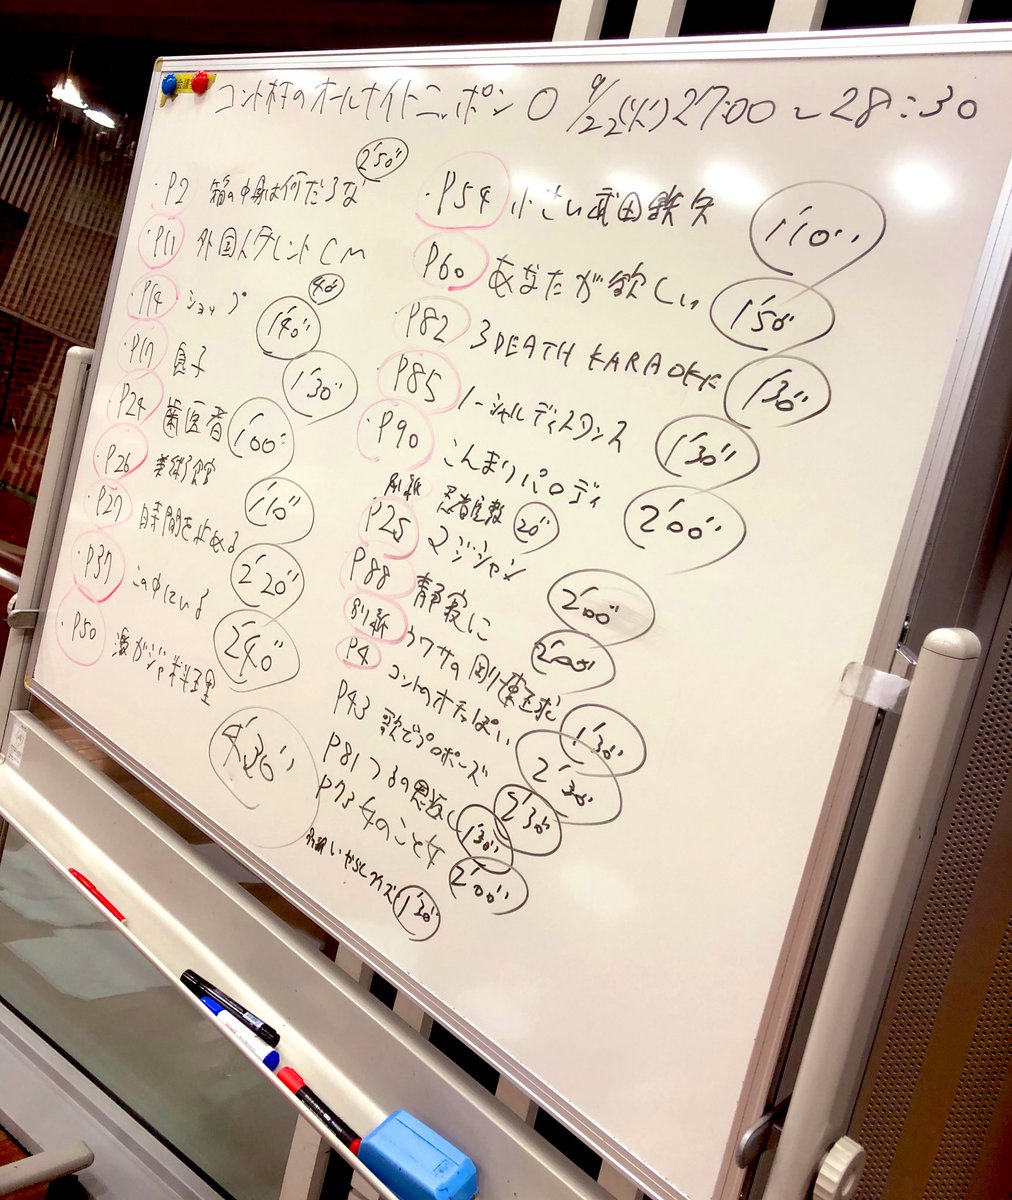 コント村のオールナイトニッポン0 9/22(火)27:00~28:30
・P2 箱の中身は何だろな 2'50"
・P11 外国人タレントCM 40"
・P14 ショップ 1'40"
・P17 息子 1'30"
・P24 歯医者 1'00"
・P26 美術館 1'10"
・P27 時間を止める 2'20"
・P37 この中にいる 2'40"
・P50 激がジャ料理 4'30"
・P54 小さい武田鉄矢 1'10"
・P60 あなたが欲しい 1'50"
・P82 3 DEATH KARAOKE 1'30"
・P85 ソーシャルディスタンス 1'30"
・P90 こんまりパロディ 2'00"
別紙 忍者屋敷 20"
・P25 マジシャン 2'00"
P88 静寂に 2'00"
別紙 ウワサの剛速球 1'30"
P4 コントのオチっぽい 2'30"
P43 歌でプロポーズ 2'30"
P81 つるの恩返し 1'30"
P73 女のこと女 2'00"
別紙 クイズ 1'30"